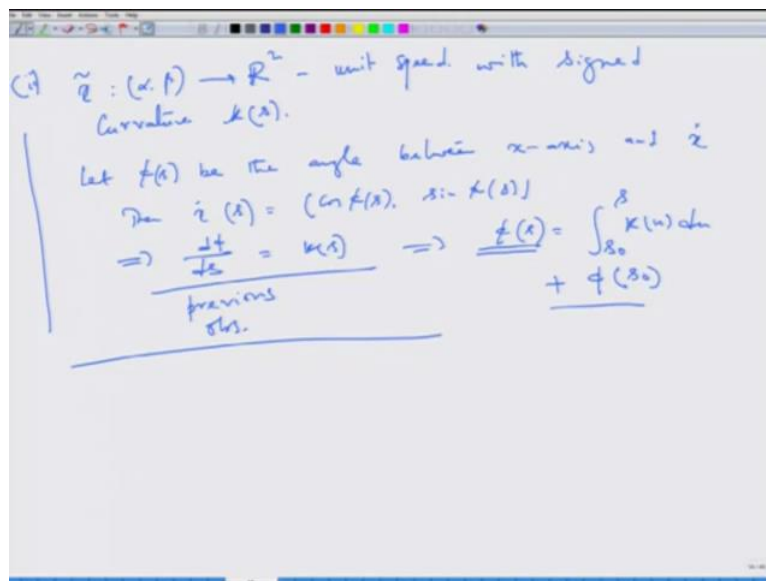 (ii) γ̃ : (α, β) → R² - unit speed with signed
Curvature k(s).
Let φ(s) be the angle between x-axis and γ̇
Then γ̇(s) = (cos φ(s), sin φ(s))
⇒ dφ/ds = k(s) ⇒ φ(s) = ∫_{s₀}^{s} k(u) du
+ φ(s₀)
previous
obs.